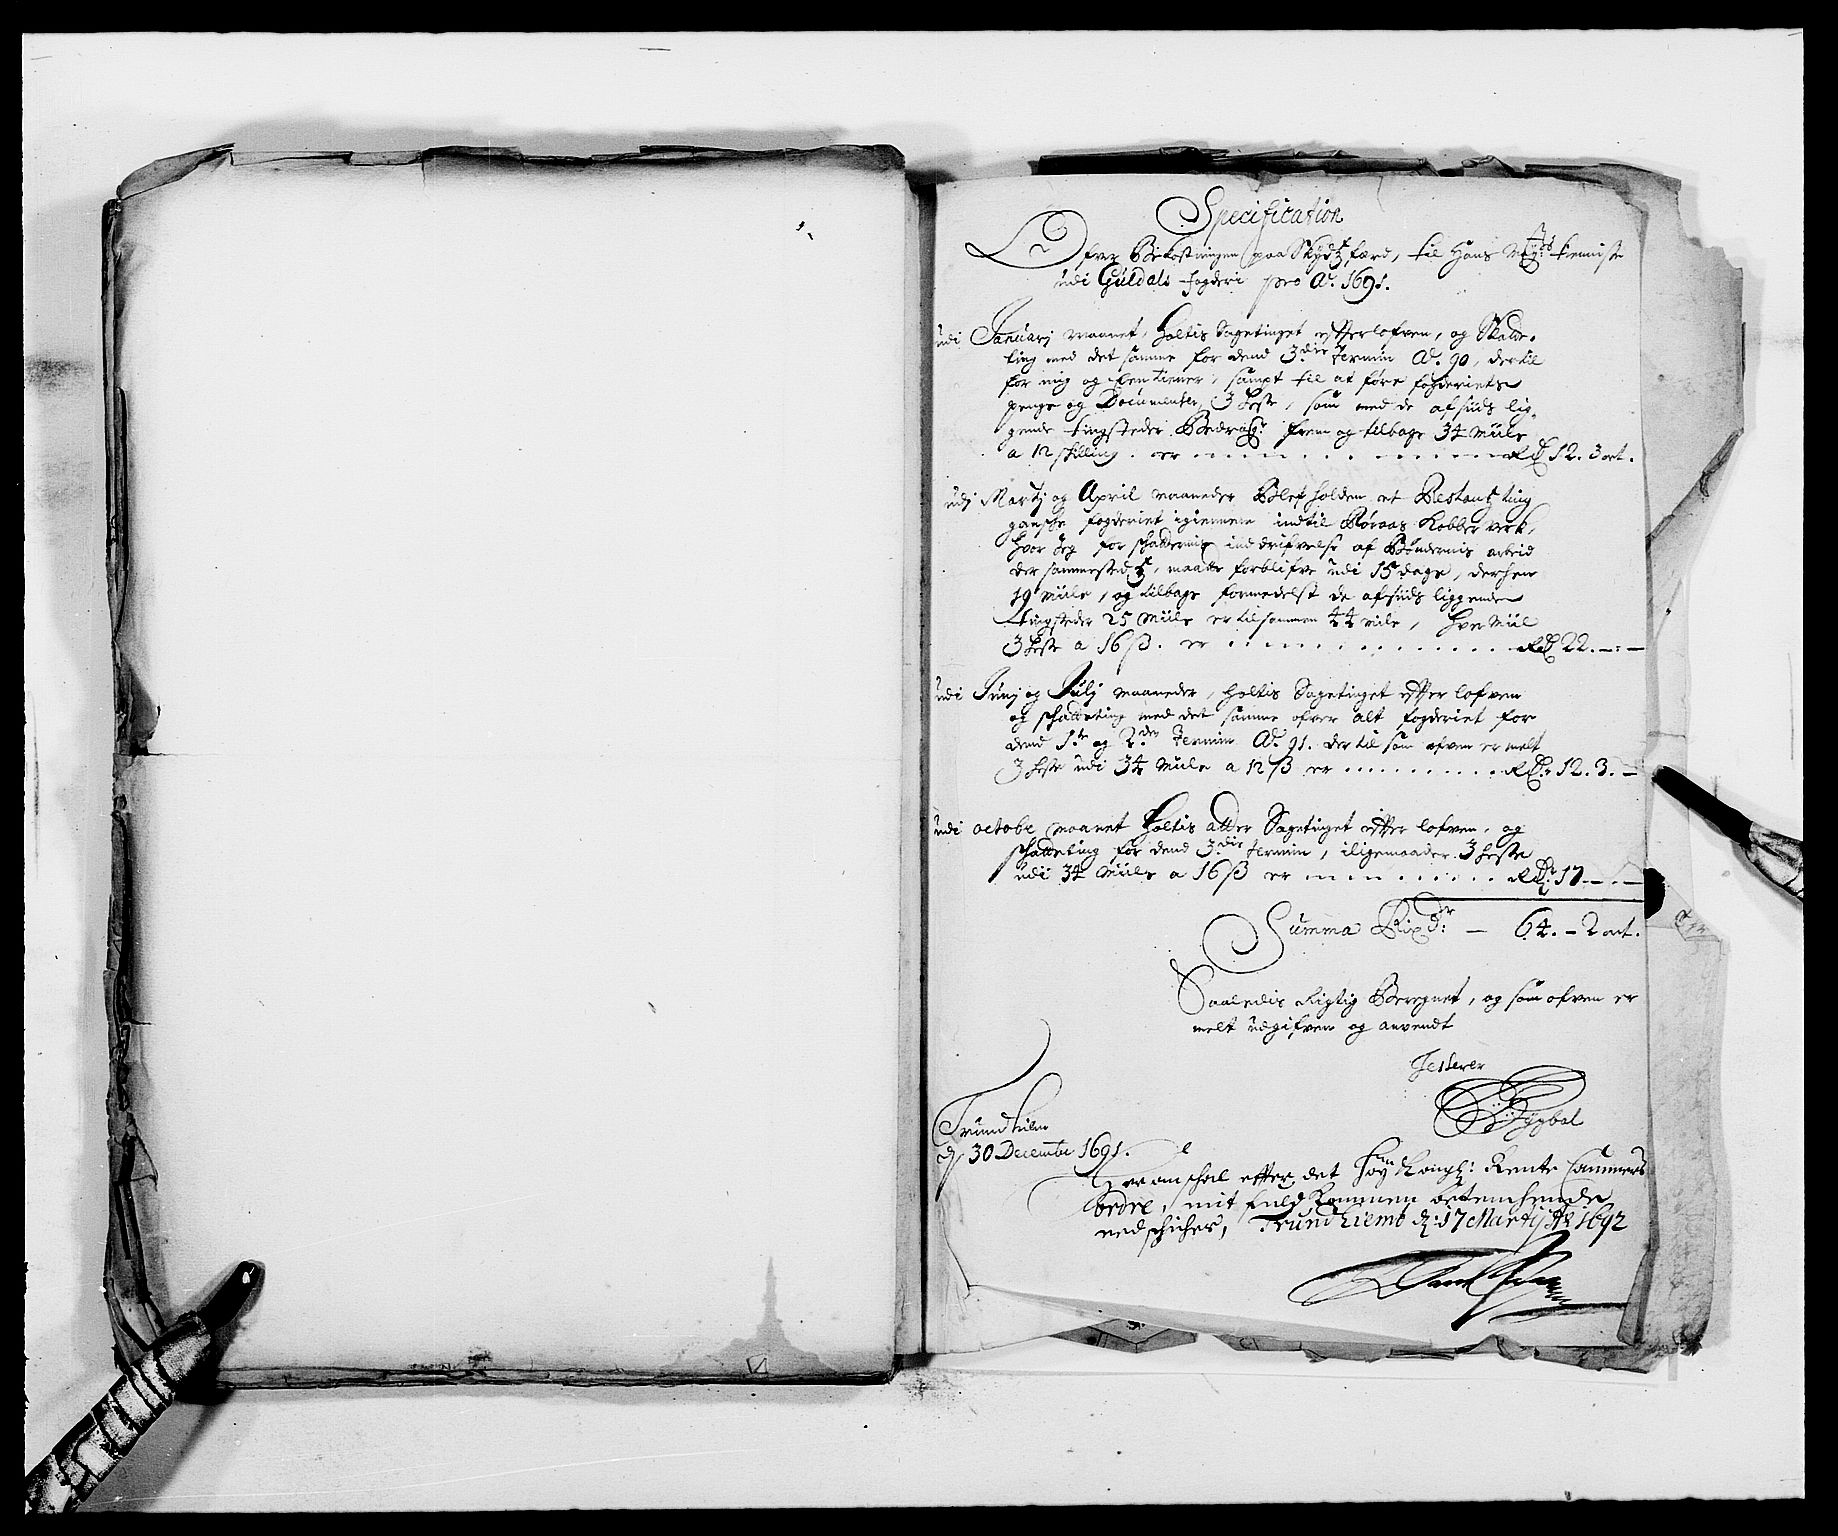 Specification
Ofver Bekostningen paa Skydtzfærd, til Hans Mayts: tienniste
udi Guldals fogderi pro Ao. 1691.
udi Januarj maanet, holtis Sagetinget effter lofven, og Skatte-
ting med det samme for dend 3die Termin Ao. 90, dertil
for mig og een tiener, sampt til at føre fogderiets
penge og Documenter, 3 heste, som med de afsiids lig-
gende tingsteder Bedrager frem og tilbage 34 Miile
a 12 skilling er Rd 12. 3 ort.
udj Martj og April maaneder Blef holden et Restantz ting
gansche fogderiet igiennem indtil Røraas Kobber verk,
hvor Jeg for schatternis inddrifvelse af Bøndernis arbeid
der sammestedtz, maatte forblifve udi 15 dage, derhen
19 Miile, og tilbage formedelst de afsiids liggende
tingsteder 25 Miile er tilsammen 44 mile, hver Miil
3 heste a 16 ß. er Rd 22. - : -
udi Junj og Julj maaneder, holtis Sagetinget effter lofven
og schatteting med det samme ofver alt fogderiet for
dend 1te og 2den Termin Ao. 91. dertil som ofven er melt
3 heste udi 34 Miile a 12 ß er Rd: 12. 3. -
udi octobr maanet holtis atter Sagetinget effter lofven, og
schatteting for dend 3die Termin, iligemaader 3 heste
udi 34 Miile a 16 ß er Rdr: 17 - . -
Summa Rixdr: - 64. - 2 ort.
Saaledis Rigtig Beregnet, og som ofven er
melt udgifven og anvendt
Testerer
Trundhiem
dj 30 Decembr 1691.
effter det Høy Kongl: Rente Cammers
ordre, mit fuldkommen betenchende
nedschicher, Trundhiemb d: 17 Martij Ao 1692